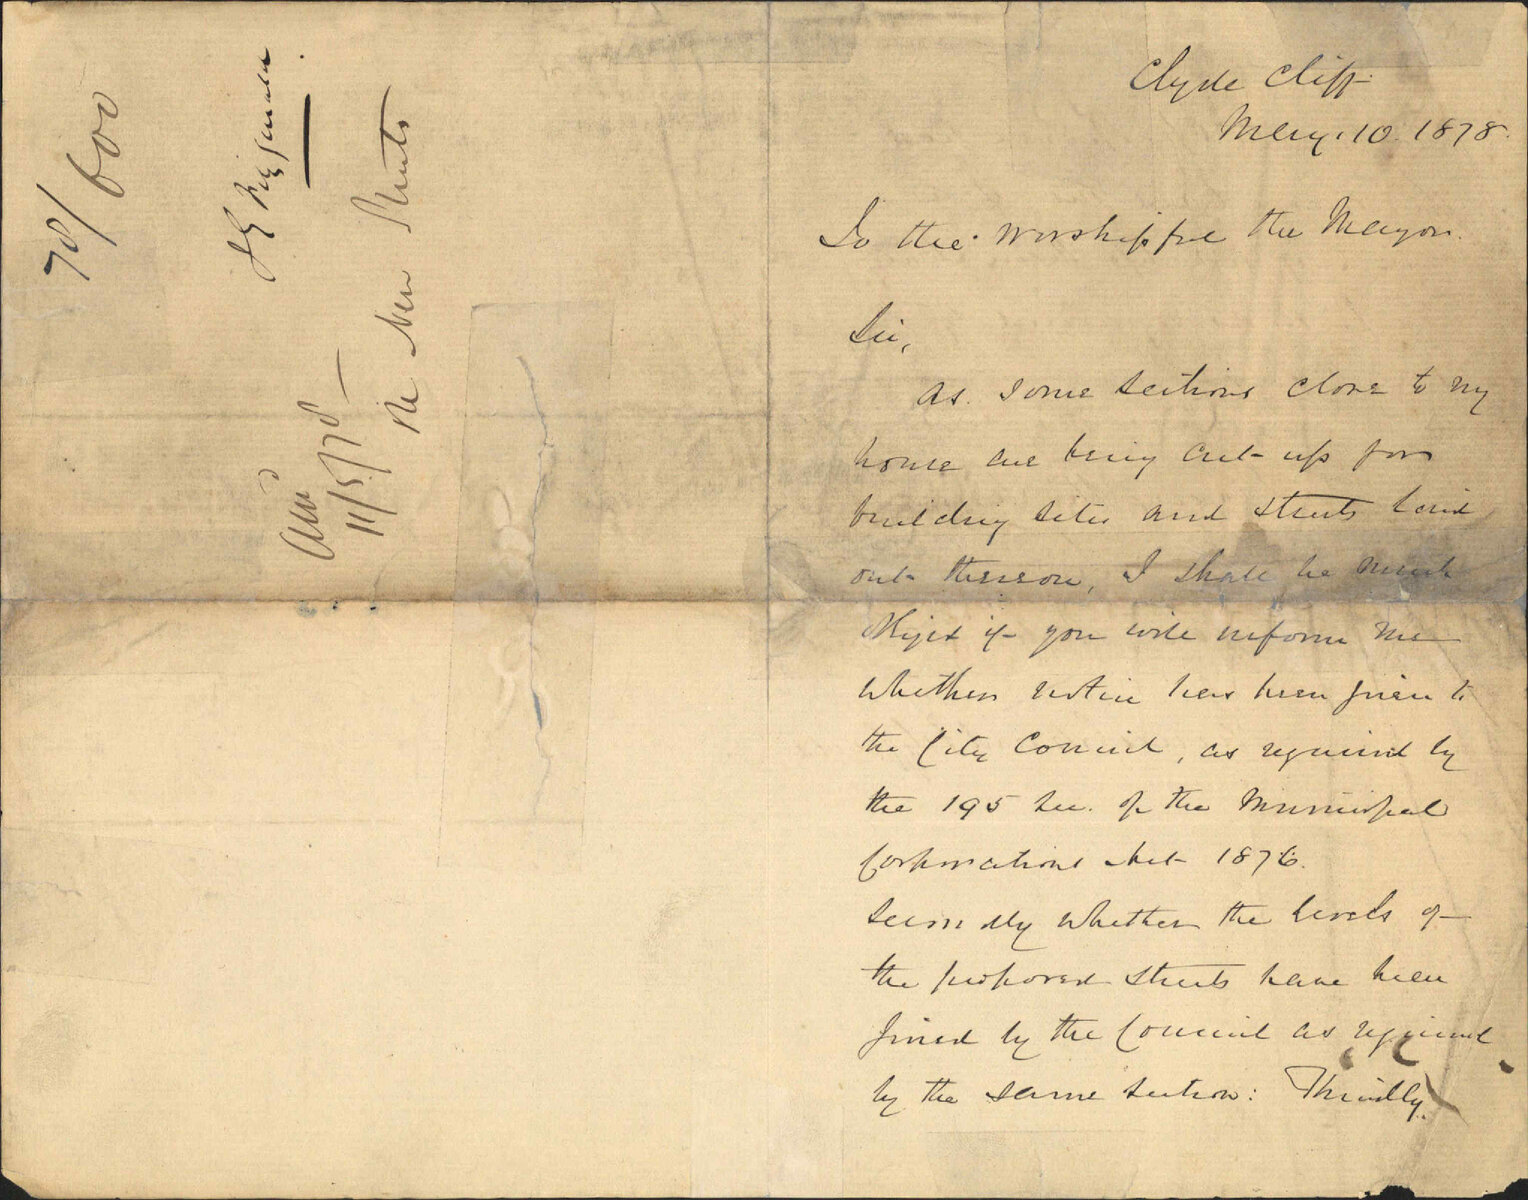 78/600
Re New Streets
Ansd
11/5/78
Clyde Cliff
May. 10. 1878.
To the Worshipful the Mayor.
Sir,
As some sections close to my
house are being cut up for
building sites and streets laid
out thereon, I shall be much
obliged if you will inform me
whether notice has been given to
the City Council, as required by
the 195 Sec. of the Municipal
Corporations Act 1876.
Secondly whether the levels of
the proposed streets have been
fixed by the Council as required
by the same section: Thirdly,